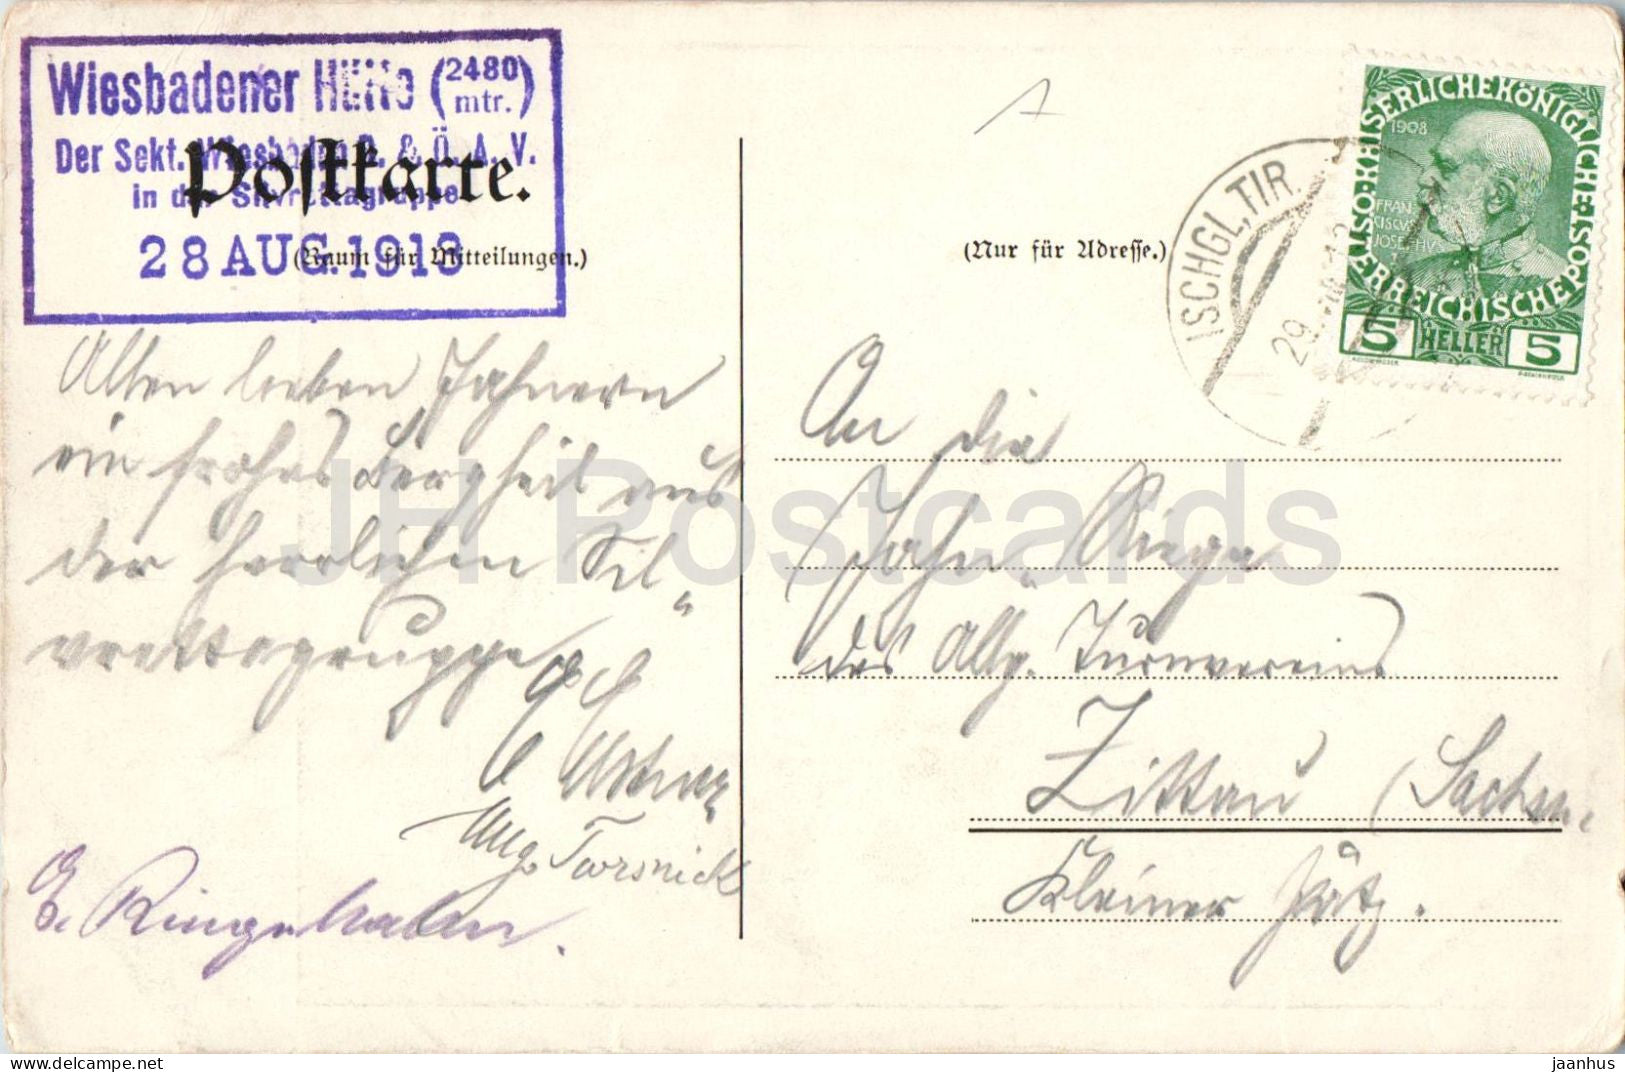 Wiesbadener Hütte (2480 mtr.)
Der Sekt. Wiesbaden D. & Ö. A. V.
in der Silvrettagruppe
28 AUG. 1913
Postkarte.
(Raum für Mitteilungen.)
(Nur für Adresse.)
ISCHGL, TIR.
29. VIII. 13
KAISERLICHE KÖNIGLICHE ÖSTERREICHISCHE POST
1908
FRANCISCUS JOSEPHUS I
5 HELLER 5
Allen lieben Jahnern
ein frohes Bergheil aus
der herrlichen Sil-
vrettagruppe
Aug. Tworsnick
E. Ringehahn.
An die
Jahn-Riege
des Allg. Turnvereins
Zittau (Sachsen.
Kleiner
JH Postcards
delcampe.net
jaanhus